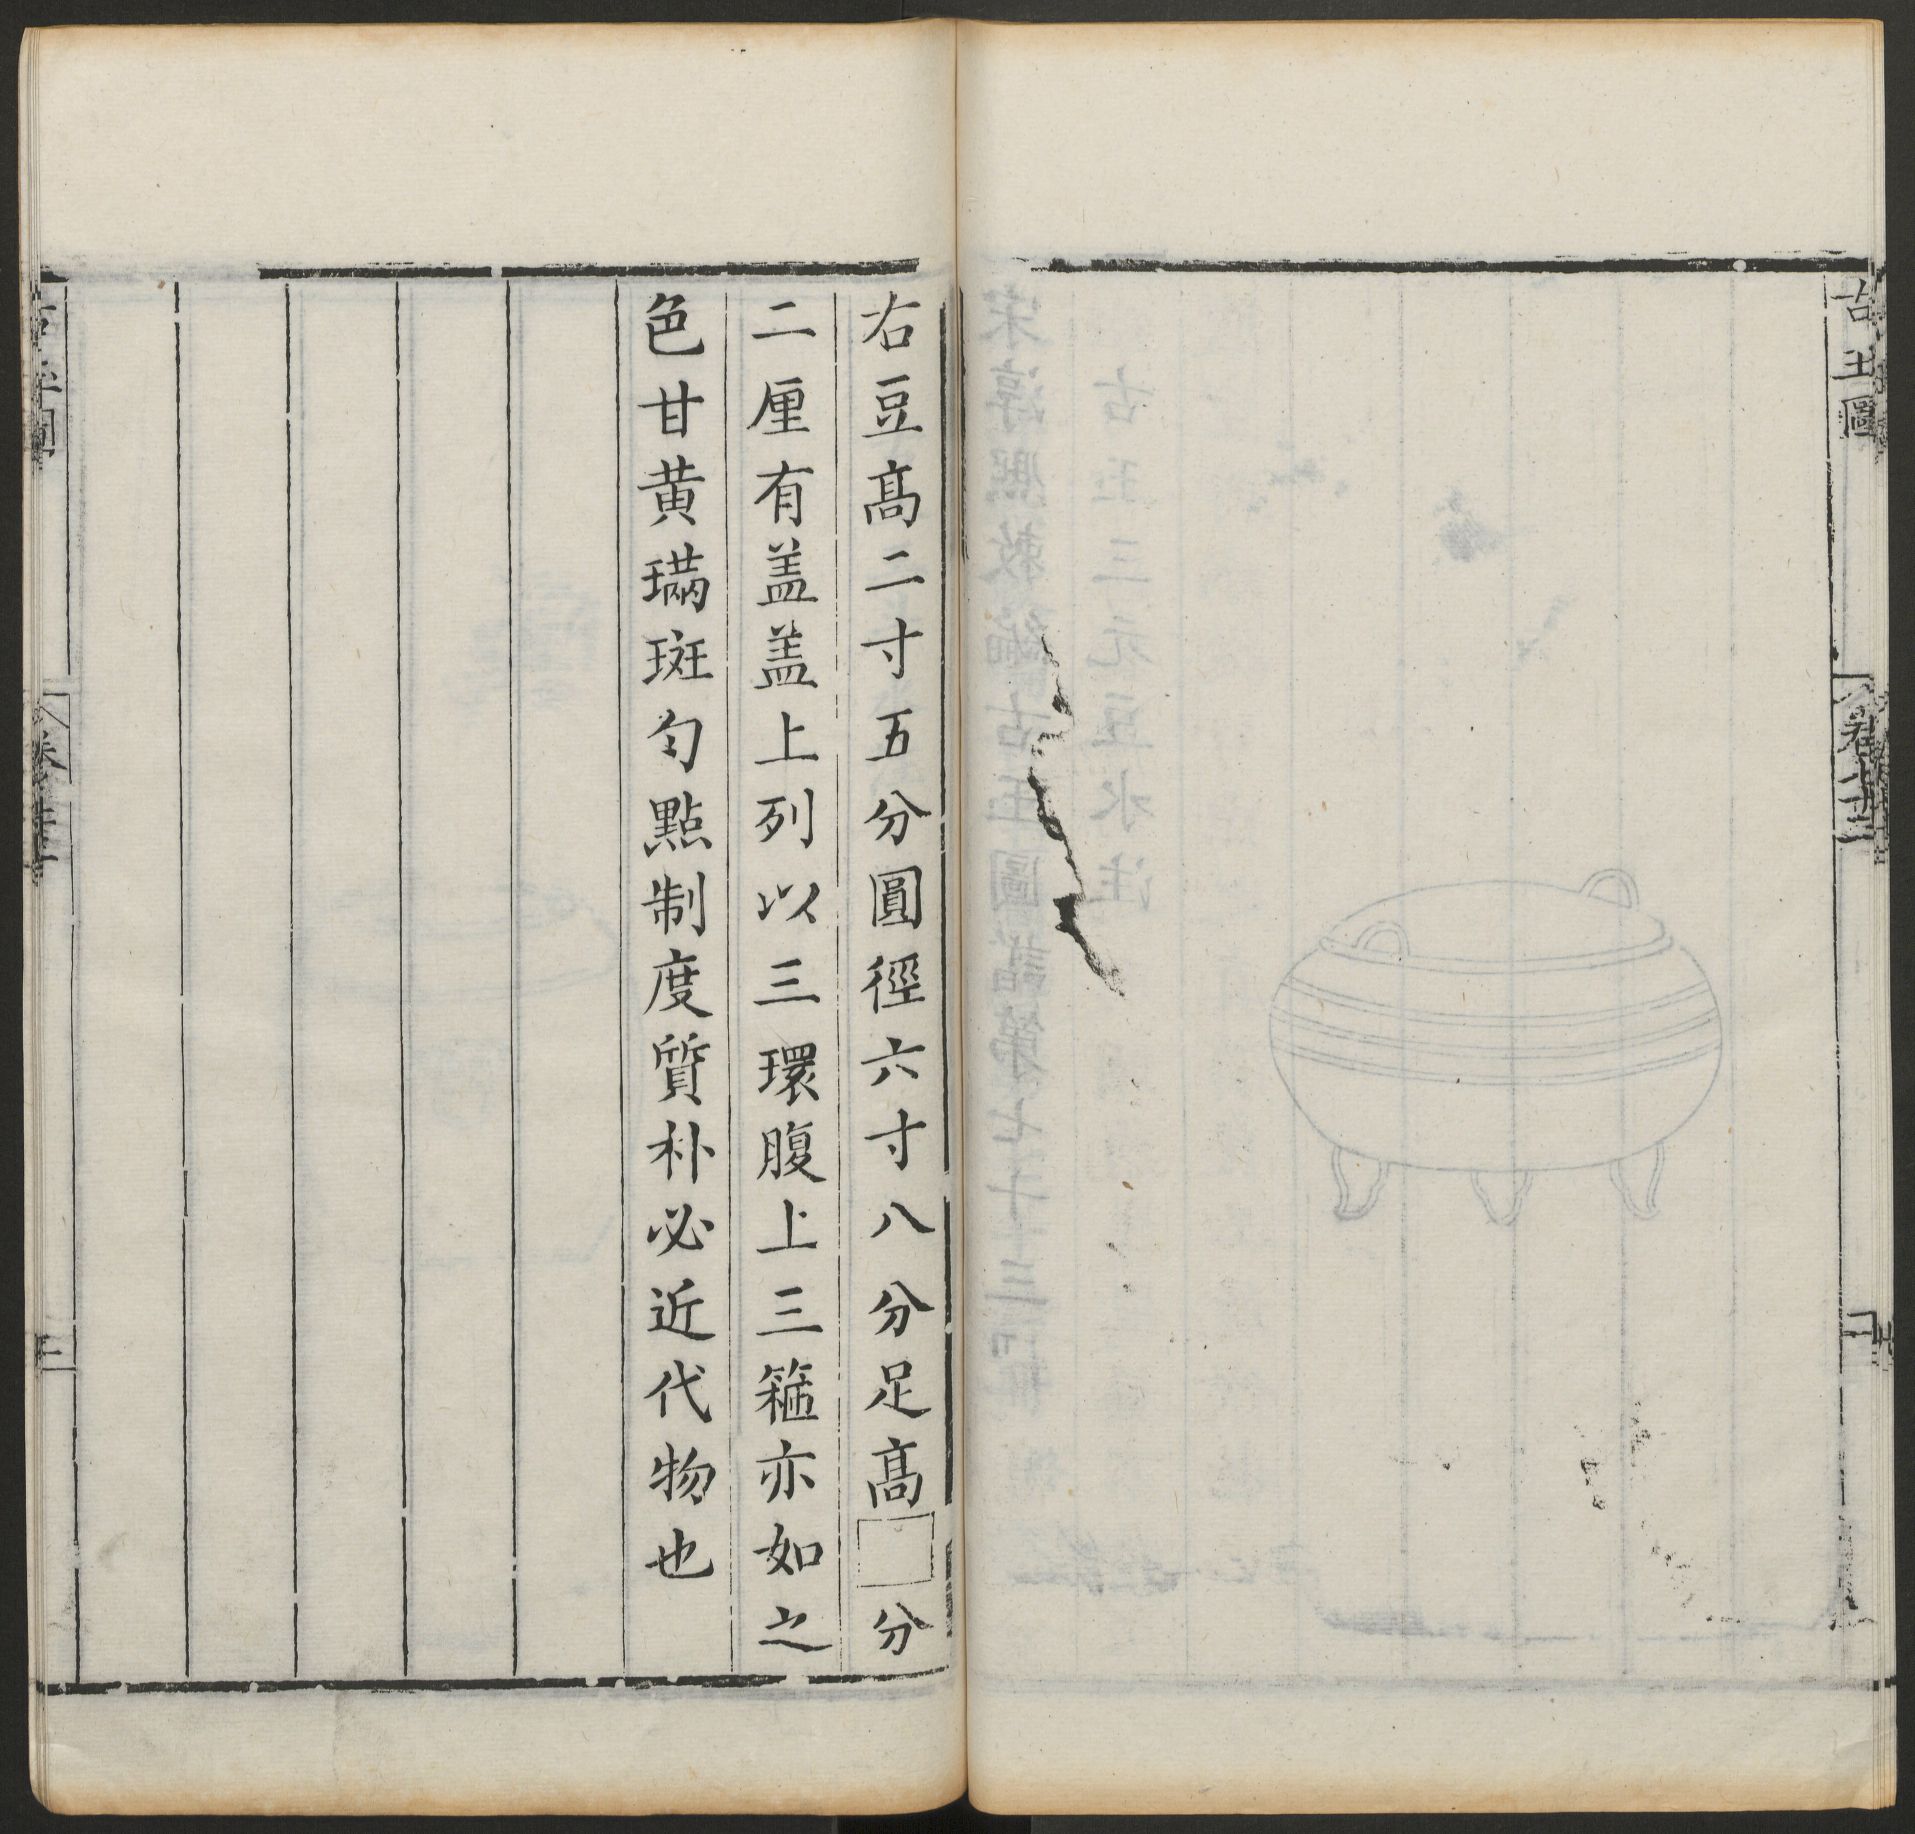 古玉圖
卷七十三
二
右豆高二寸五分圓徑六寸八分足高□分
二厘有盖盖上列以三環腹上三箍亦如之
色甘黄璊斑匀點制度質朴必近代物也
三